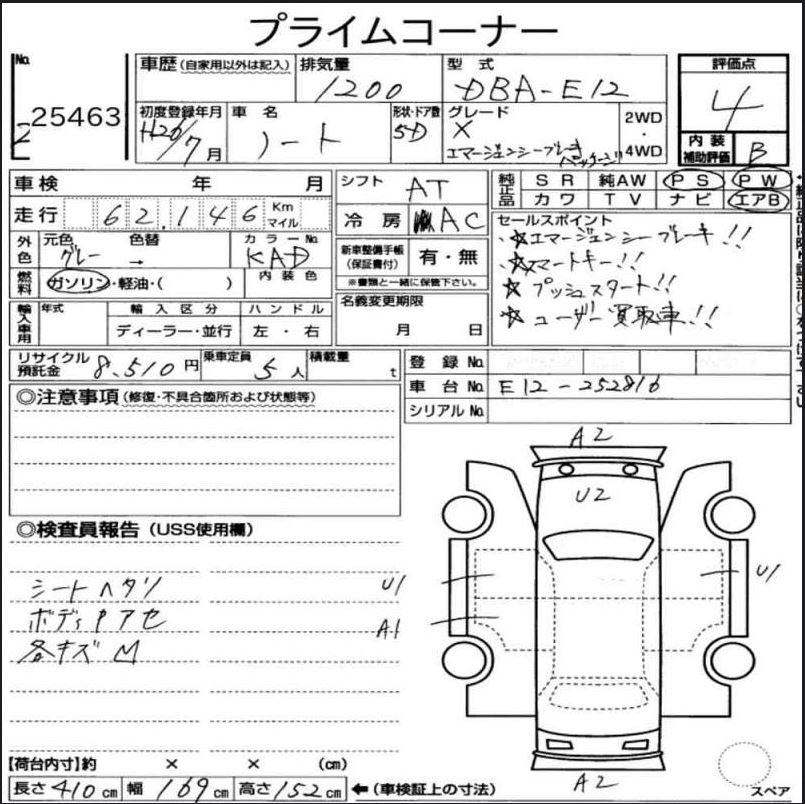 プライムコーナー
No. 25463
2
車歴 (自家用以外は記入)
排気量 1200
型式 DBA-E12
評価点 4
初度登録年月 H26/7月
車名 ノート
形状・ドア数 5D
グレード X
エマージェンシーブレーキ
パッケージ
2WD・4WD
内装補助評価 B
車検 年 月
シフト AT
純正品 SR 純AW PS PW
カワ TV ナビ エアB
走行 62,146 Km マイル
冷房 AC
セールスポイント
☆エマージェンシーブレーキ!!
☆スマートキー!!
☆プッシュスタート!!
☆ユーザー買取車!!
外色 元色 グレー 色替 → カラーNo. KAD
新車整備手帳 (保証書付) 有・無
※書類と一緒に保管下さい。
燃料 ガソリン・軽油・( ) 内装色
名義変更期限 月 日
輸入車用 年式 輸入区分 ハンドル
ディーラー・並行 左・右
リサイクル預託金 8,510円
乗車定員 5人
積載量 t
登録No.
車台No. E12-252816
シリアルNo.
◎注意事項 (修復・不具合箇所および状態等)
◎検査員報告 (USS使用欄)
シートヘタリ
各キズ凹
A2
U2
U1
U1
A1
A2
スペア
【荷台内寸】約 × × (cm)
長さ 410cm 幅 169cm 高さ 152cm ←(車検証上の寸法)